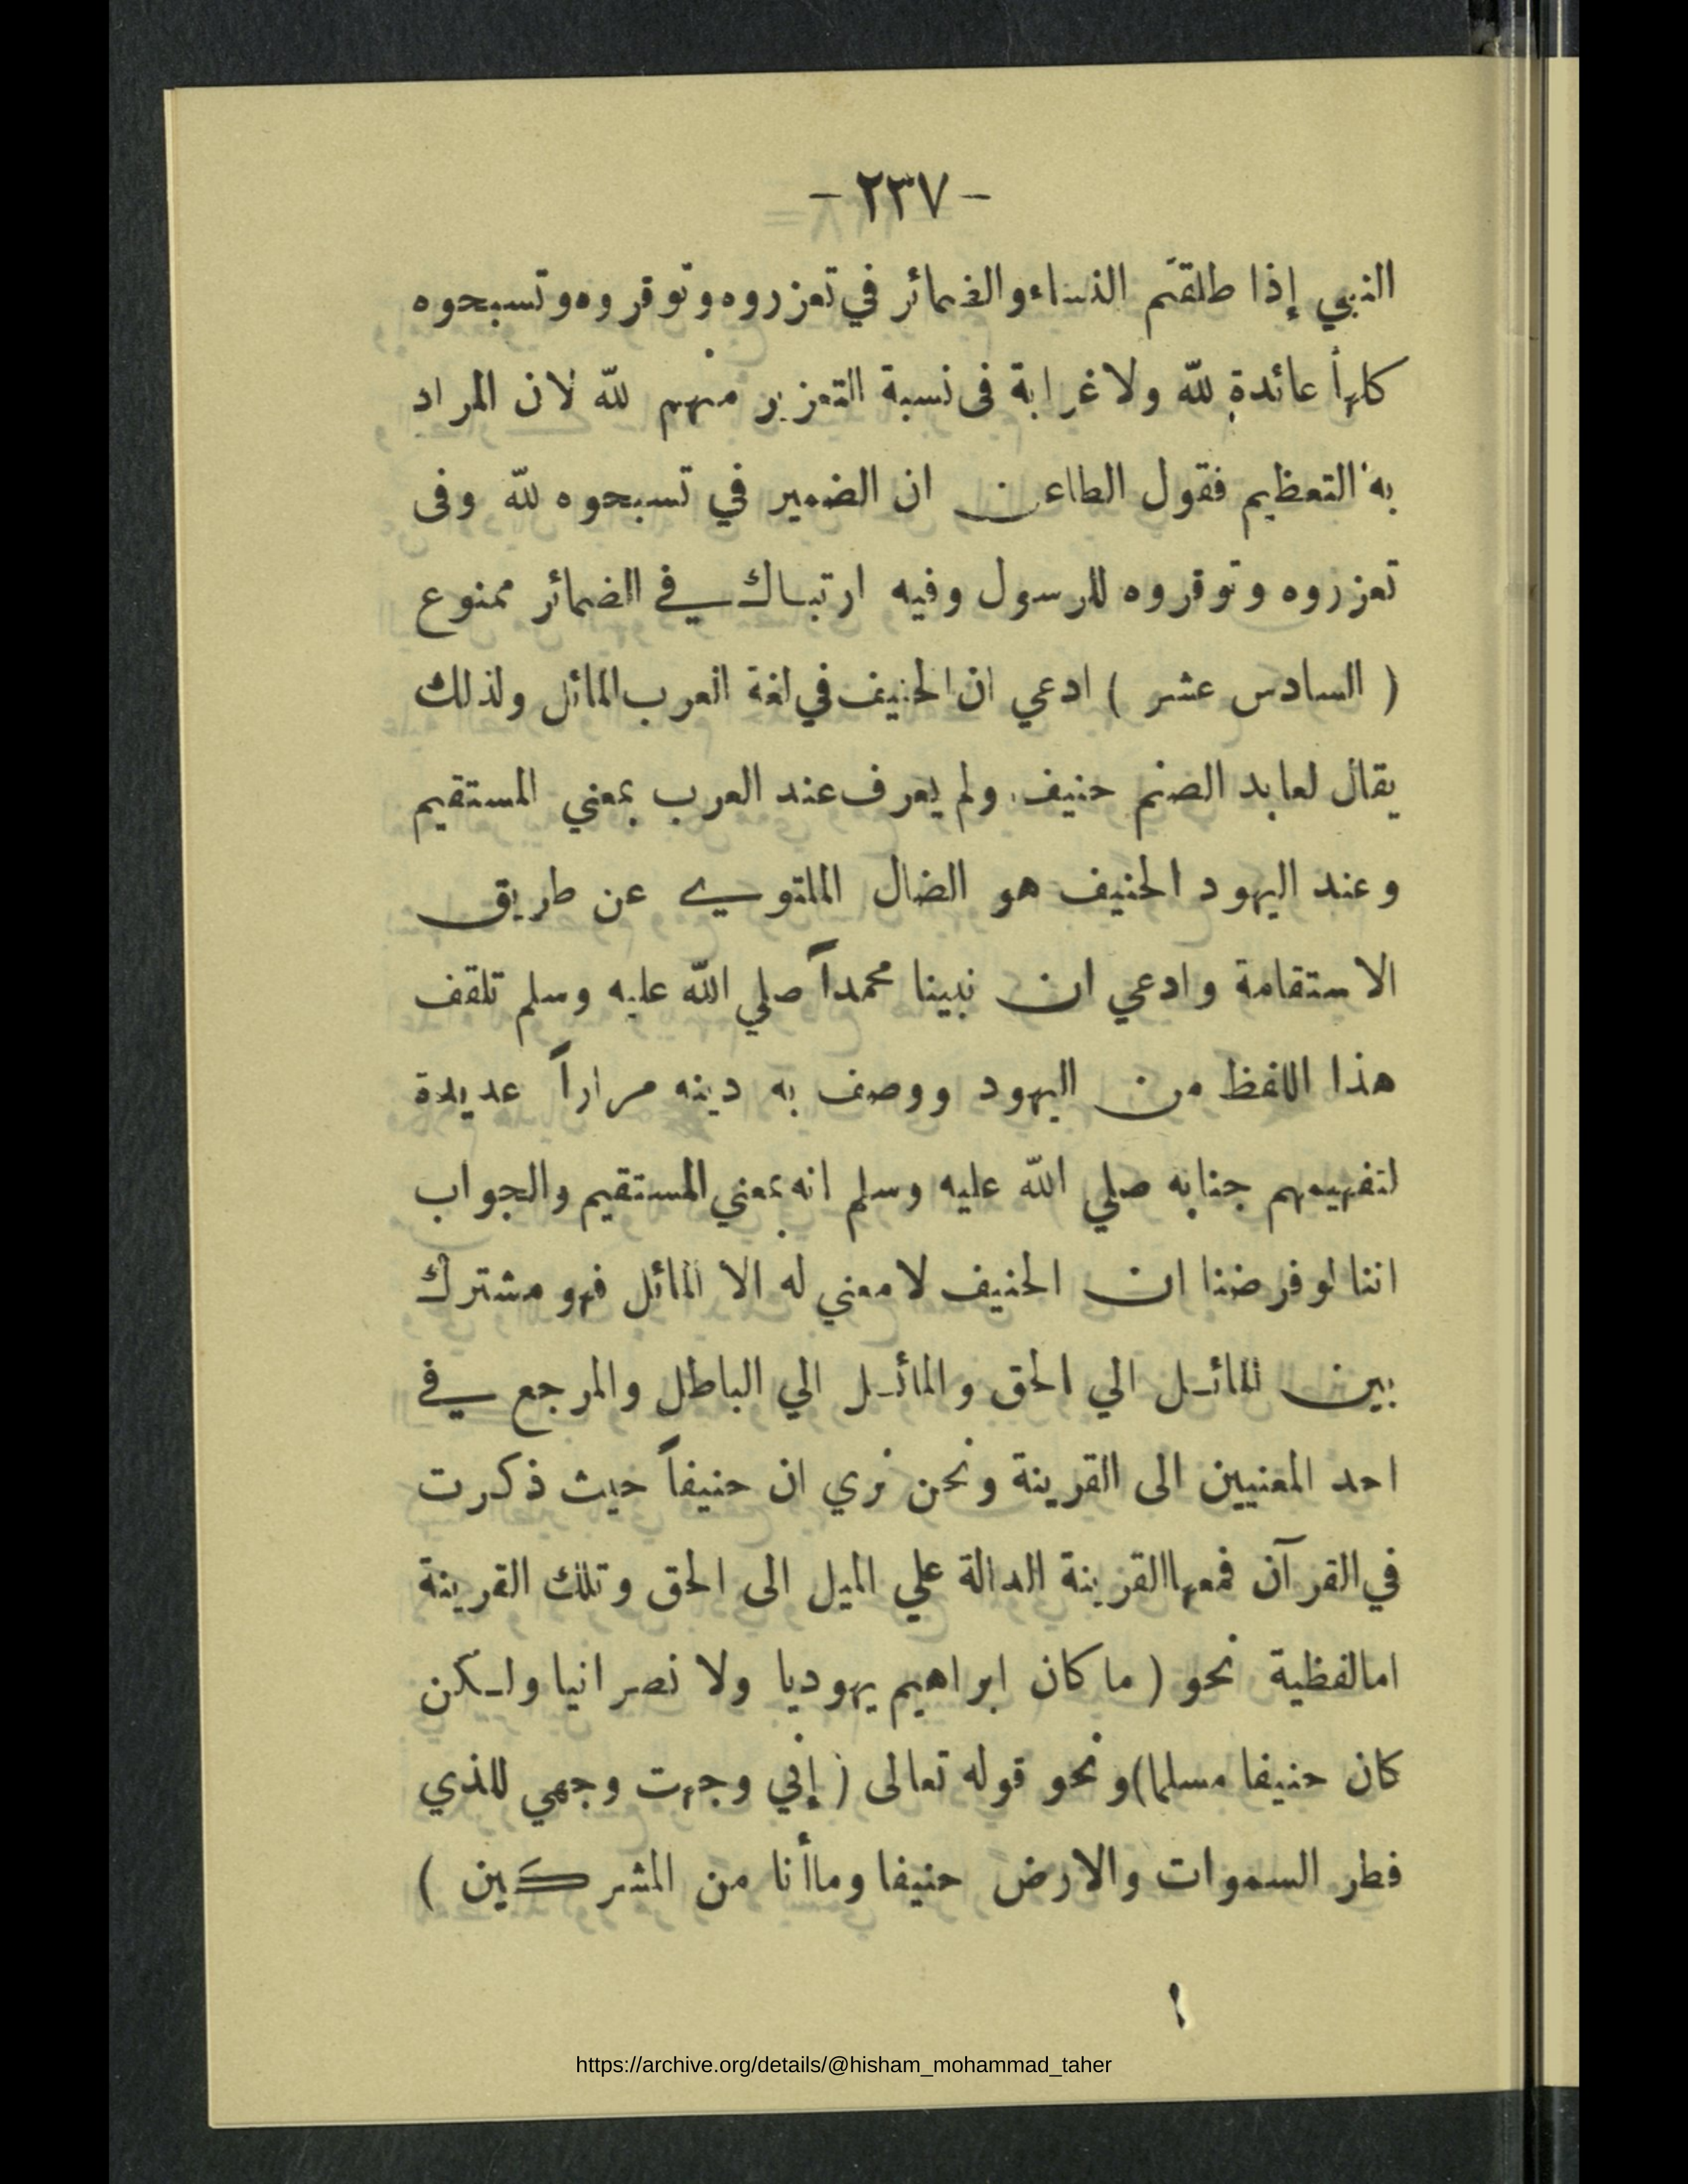 - ٢٣٧ -
النبي إذا طلقتم النساء والضمائر في تعزروه وتوقروه وتسبحوه
كلها عائدة لله ولا غرابة فى نسبة التعزير منهم لله لان المراد
به التعظيم فقول الطاعن ان الضمير في تسبحوه لله وفى
تعزروه وتوقروه للرسول وفيه ارتباك في الضمائر ممنوع
( السادس عشر ) ادعي ان الحنيف في لغة العرب المائل ولذلك
يقال لعابد الصنم حنيف ولم يعرف عند العرب بمعني المستقيم
وعند اليهود الحنيف هو الضال الملتوي عن طريق
الاستقامة وادعي ان نبينا محمداً صلي الله عليه وسلم تلقف
هذا اللفظ من اليهود ووصف به دينه مراراً عديدة
لتفهيمهم جنابه صلي الله عليه وسلم انه بمعني المستقيم والجواب
اننا لو فرضنا ان الحنيف لا معني له الا المائل فهو مشترك
بين المائل الي الحق والمائل الي الباطل والمرجع في
احد المعنيين الى القرينة ونحن نري ان حنيفاً حيث ذكرت
في القرآن فمعها القرينة الدالة علي الميل الى الحق وتلك القرينة
امالفظية نحو ( ما كان ابراهيم يهوديا ولا نصرانيا ولكن
كان حنيفا مسلما) ونحو قوله تعالى ( إني وجهت وجهي للذي
فطر السموات والارض حنيفا وما أنا من المشركين )
https://archive.org/details/@hisham_mohammad_taher